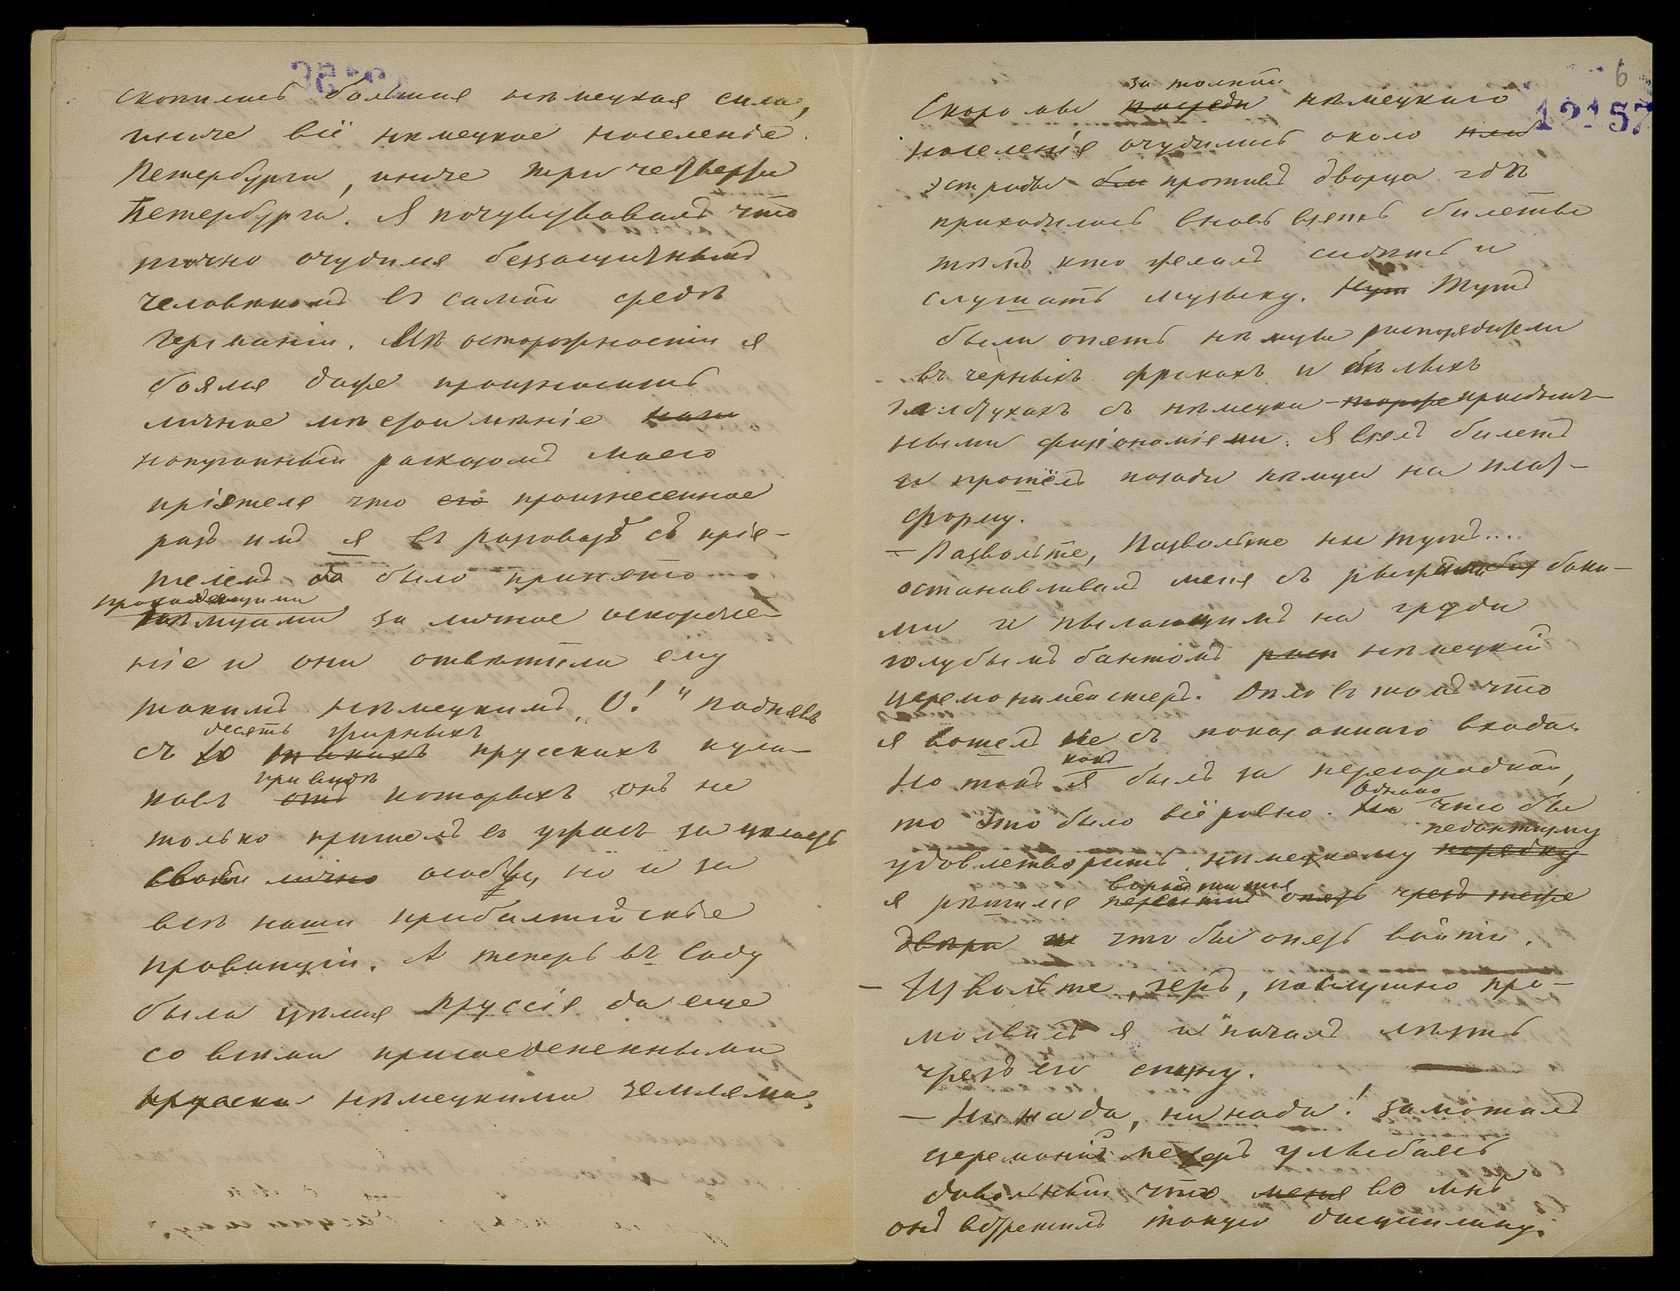 скопилась большая нѣмецкая сила,
иначе всё нѣмецкое населеніе
Петербурга, иначе три четверти
Петербурга. Я почувствовалъ что
точно очутился беззащитнымъ
человѣкомъ въ самой средѣ
Германіи. Изъ осторожности я
боялся даже произносить
личное мѣстоименіе
напуганный разсказомъ моего
пріятеля что его произнесенное
разъ имъ я въ разговорѣ съ прія-
телемъ было принято
проходящими
нѣмцами за личное оскорбле-
ніе и они отвѣтили ему
такимъ нѣмецкимъ „О!“ поднявъ
десять жирныхъ
съ 10 такихъ прусскихъ кула-
при видѣ
ковъ отъ которыхъ онъ не
только пришелъ въ ужасъ за цѣлость
своей лично особы, но и за
всѣ наши прибалтійскіе
провинціи. А теперь въ саду
была цѣлая Пруссія да еще
со всѣми присоединенными
нѣмецкими землями.
6
12157
за толпой
Скоро мы посреди нѣмецкаго
населенія очутились около
эстрады противъ дворца гдѣ
приходилось вновь взять билеты
тѣмъ кто желалъ сидѣть и
слушать музыку. Тутъ
были опять нѣмцы распорядители
въ черныхъ фракахъ и бѣлыхъ
галстухахъ съ нѣмецки
ными физіономіями. Я взялъ билетъ
и прошёлъ позади нѣмца на плат-
форму.
— Позвольте, позвольте не тутъ....
останавливалъ меня съ рыжими бака-
ми и пылающимъ на груди
голубымъ бантомъ нѣмецкій
церемоніймейстеръ. Дѣло въ томъ что
я вошелъ не съ показаннаго входа.
какъ
Но такъ я былъ за перегородкой,
Однако
то это было всё равно. Но что бы
педантизму
удовлетворить нѣмецкому порядку
воротиться
я рѣшился перейти опять чрезъ теже
двери и что бы опять войти.
— Извольте, геръ, послушно про-
молвилъ я и началъ лѣзть
чрезъ его спину.
— Не надо, не надо! замоталъ
церемоніймейстеръ улыбаясь
довольный что меня во мнѣ
онъ встрѣтилъ такую дисциплину.